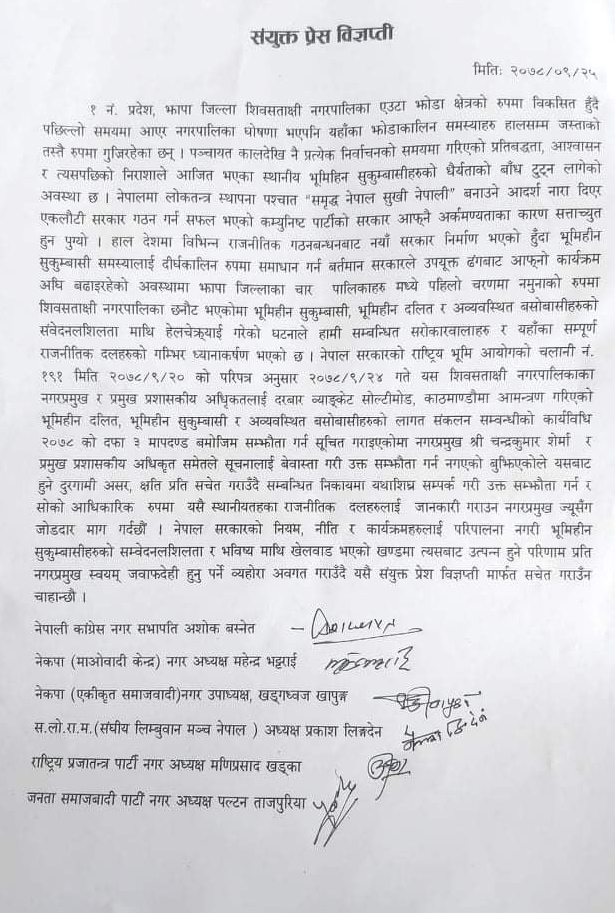 संयुक्त प्रेस विज्ञप्ती
मितिः २०७८/०९/२५
१ नं. प्रदेश, झापा जिल्ला शिवसताक्षी नगरपालिका एउटा झोडा क्षेत्रको रुपमा विकसित हुँदै
पछिल्लो समयमा आएर नगरपालिका घोषणा भएपनि यहाँका झोडाकालिन समस्याहरु हालसम्म जस्ताको
तस्तै रुपमा गुजिरहेका छन् । पञ्चायत कालदेखि नै प्रत्येक निर्वाचनको समयमा गरिएको प्रतिबद्धता, आश्वासन
र त्यसपछिको निराशाले आजित भएका स्थानीय भूमिहिन सुकुम्बासीहरुको धैर्यताको बाँध टुट्न लागेको
अवस्था छ । नेपालमा लोकतन्त्र स्थापना पश्चात "समृद्ध नेपाल सुखी नेपाली" बनाउने आदर्श नारा दिएर
एकलौटी सरकार गठन गर्न सफल भएको कम्युनिष्ट पार्टीको सरकार आफ्नै अर्कमण्यताका कारण सत्ताच्युत
हुन पुग्यो । हाल देशमा विभिन्न राजनीतिक गठनबन्धनबाट नयाँ सरकार निर्माण भएको हुँदा भूमिहीन
सुकुम्बासी समस्यालाई दीर्घकालिन रुपमा समाधान गर्न बर्तमान सरकारले उपयूक्त ढंगबाट आफ्नो कार्यक्रम
अघि बढाइरहेको अवस्थामा झापा जिल्लाका चार पालिकाहरु मध्ये पहिलो चरणमा नमुनाको रुपमा
शिवसताक्षी नगरपालिका छनौट भएकोमा भूमिहीन सुकुम्बासी, भूमिहीन दलित र अव्यवस्थित बसोबासीहरुको
संवेदनलशिलता माथि हेलचेक्र्याई गरेको घटनाले हामी सम्बन्धित सरोकारवालाहरु र यहाँका सम्पूर्ण
राजनीतिक दलहरुको गम्भिर ध्यानाकर्षण भएको छ । नेपाल सरकारको राष्ट्रिय भूमि आयोगको चलानी नं.
१९१ मिति २०७८/९/२० को परिपत्र अनुसार २०७८/९/२४ गते यस शिवसताक्षी नगरपालिकाका
नगरप्रमुख र प्रमुख प्रशासकीय अधिकृतलाई दरबार व्याङ्केट सोल्टीमोड, काठमाण्डौमा आमन्त्रण गरिएको
भूमिहीन दलित, भूमिहीन सुकुम्बासी र अव्यवस्थित बसोबासीहरुको लागत संकलन सम्वन्धीको कार्यविधी
२०७८ को दफा ३ मापदण्ड बमोजिम सम्झौता गर्न सूचित गराइएकोमा नगरप्रमुख श्री चन्द्रकुमार शेर्मा र
प्रमुख प्रशासकीय अधिकृत समेतले सूचनालाई बेवास्ता गरी उक्त सम्झौता गर्न नगएको बुझिएकोले यसबाट
हुने दुरगामी असर, क्षति प्रति सचेत गराउँदै सम्बन्धित निकायमा यथाशिघ्र सम्पर्क गरी उक्त सम्झौता गर्न र
सोको आधिकारिक रुपमा यसै स्थानीयतहका राजनीतिक दलहरुलाई जानकारी गराउन नगरप्रमुख ज्यूसँग
जोडदार माग गर्दछौं । नेपाल सरकारको नियम, नीति र कार्यक्रमहरुलाई परिपालना नगरी भूमिहीन
सुकुम्बासीहरुको सम्वेदनलशिलता र भविष्य माथि खेलवाड भएको खण्डमा त्यसबाट उत्पन्न हुने परिणाम प्रति
नगरप्रमुख स्वयम् जवाफदेही हुनु पर्ने व्यहोरा अवगत गराउँदै यसै संयुक्त प्रेश विज्ञप्ती मार्फत सचेत गराउँन
चाहान्छौ ।
नेपाली कांग्रेस नगर सभापति अशोक बस्नेत
नेकपा (माओवादी केन्द्र) नगर अध्यक्ष महेन्द्र भट्टराई
नेकपा (एकीकृत समाजवादी)नगर उपाध्यक्ष, खड्गध्वज खापुङ्ग
स.लो.रा.म.(संघीय लिम्बुवान मञ्च नेपाल ) अध्यक्ष प्रकाश लिङ्गदेन
राष्ट्रिय प्रजातन्त्र पार्टी नगर अध्यक्ष मणिप्रसाद खड्का
जनता समाजबादी पार्टी नगर अध्यक्ष पल्टन ताजपुरिया